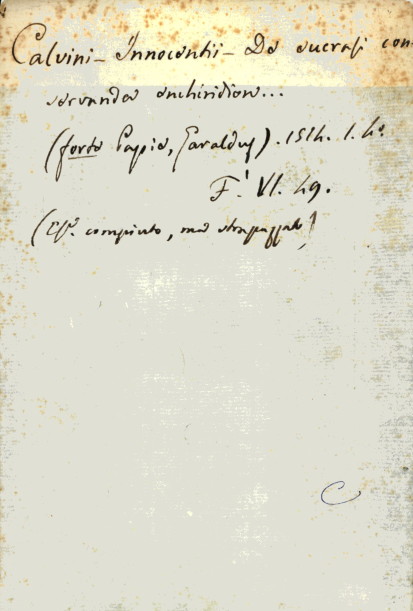 Calvini - Innocentii - De eucrasi con-
servanda enchiridion...
(forte Papie, Garaldus). 1514. 1. 4o.
F.' VI. 49.
(Es. compiuto, ma strapazzato)
C